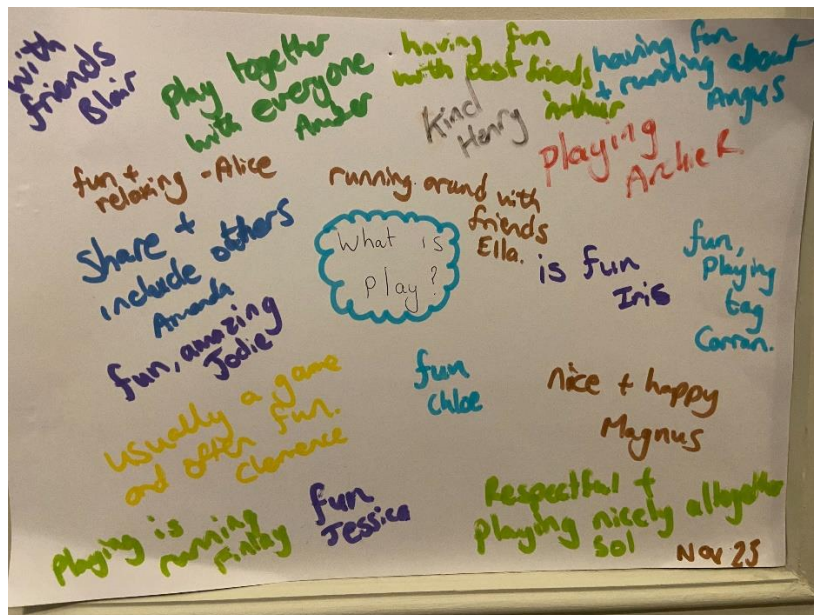 with
friends
Blair
play together
with everyone
Amber
having fun
with best friends
having fun
+ running about
Angus
Kind
Henry
Playing
Archie R.
fun +
relaxing - Alice
running around with
friends
Ella.
Share +
include others
Amanda
What is
Play?
is fun
Iris
fun,
Playing
tag
Carran.
fun, amazing
Jodie
fun
Chloe
nice + happy
Magnus
usually a game
and often fun.
Clemence
playing is
running
Finlay
fun
Jessica
Respectful +
playing nicely altogether
Sol
Nov 23